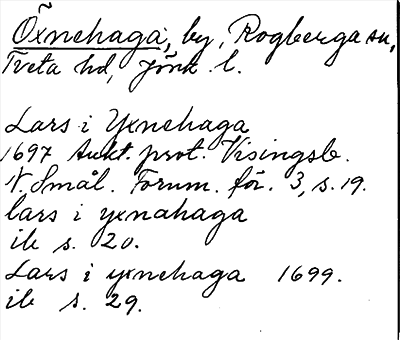 Õxnehaga, by, Rogberga sn,
Tveta hd, Jönk. l.
Lars i Yxnehaga
1697 Aukt. prot. Visingsb.
N. Smål. Fornm. för. 3, s. 19.
lars i yxnahaga
ib s. 20.
Lars i yxnehaga 1699.
ib s. 29.